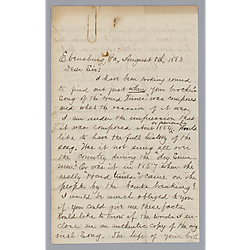 Ebensburg Pa, August 8th, 1883
Dear Sir:
I have been looking around
to find out just when your brother's
Song of the "Hard Times" was composed
and what the occasion of it was.
I am under the impression that
it was composed about 1854. Would
like to have the full history of the
song. Was it not sung all over
the Country during the day
Or was it in 1857 when the
really "Hard times" came on the
people by the banks breaking?
I would be much obliged to you
if you could give me these facts.
Would like to know if the words I en-
close are an authentic copy of the orig
inal Song. The life of your